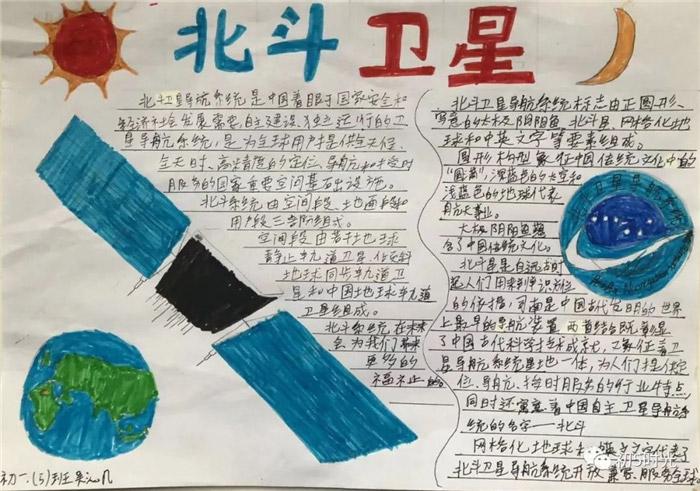 北斗卫星
北斗卫星导航系统是中国着眼于国家安全和
经济社会发展需要,自主建设、独立运行的卫
星导航系统,是为全球用户提供全天侯、
全天时、高精度的定位、导航和授时
服务的国家重要空间基石出设施。
北斗系统由空间段、地面段和
用户段三部分组成。
空间段由若干地球
静止轨道卫星、倾斜
地球同步轨道卫
星和中国地球轨道
卫星组成。
北斗系统在未来
会为我们带来
更多的
初一.(5)班
北斗卫星导航系统标志由正圆形、
写意的太极阴阳鱼、北斗星、网格化地
球和中英文字等要素组成。
圆形构型象征中国传统文化中的
"圆满",深蓝色的太空和
浅蓝色的地球代表
航天事业。
太极阴阳鱼蕴
含了中国传统文化。
北斗星是自远古时
起人们用来辨识方位
的依据,司南是中国古代发明的世界
上最早的导航装置,两者结合既彰显
了中国古代科学技术成就,又象征着卫
星导航系统星地一体,为人们提供定
位、导航、授时服务的行业特点,
同时还寓意着中国自主卫星导航系
统的名字——北斗
网格化地球和中英文文字代表了
北斗卫星导航系统开放兼容、服务全球
北斗卫星导航系统
初5时光